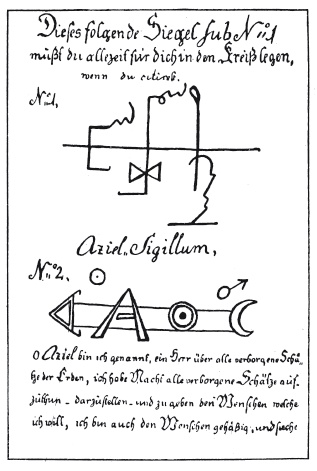 Dieses folgende Siegel sub N:º1
mußt du allezeit für dich in den Kreiß legen,
wenn du citirst.
N:º1,
Aziel„ Sigillum,
N:º2.
A
O Aziel bin ich genannt, ein Herr über alle verborgene Schä„
tze der Erden, ich habe Macht alle verborgene Schätze auf„
zuthun - darzustellen - und zu geben den Menschen welche
ich will, ich bin auch den Menschen gehäßig, und suche